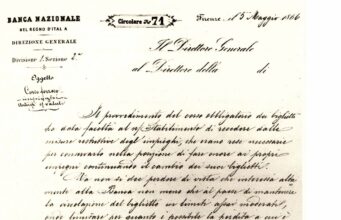 BANCA NAZIONALE
NEL REGNO D'ITALIA
DIREZIONE GENERALE
Divisione 1ª Sezione 2ª
Oggetto
Corso forzoso
Circolare N° 71
Firenze, il 5 Maggio 1866
Il Direttore Generale
al Direttore della di
Il provvedimento del corso obbligatorio dei biglietti
dà facoltà al Stabilimento di recedere dalle
misure restrittive degli impieghi, che erano rese necessarie
per conservarlo nella posizione di fare onore ai propri
impegni continuando il cambio dei suoi biglietti.
Ma non si dee perdere di vista che interessa alta-
mente alla Banca non meno che al paese di mantenere
la circolazione del biglietto in limiti assai moderati,
onde limitare per quanto è possibile la perdita a cui